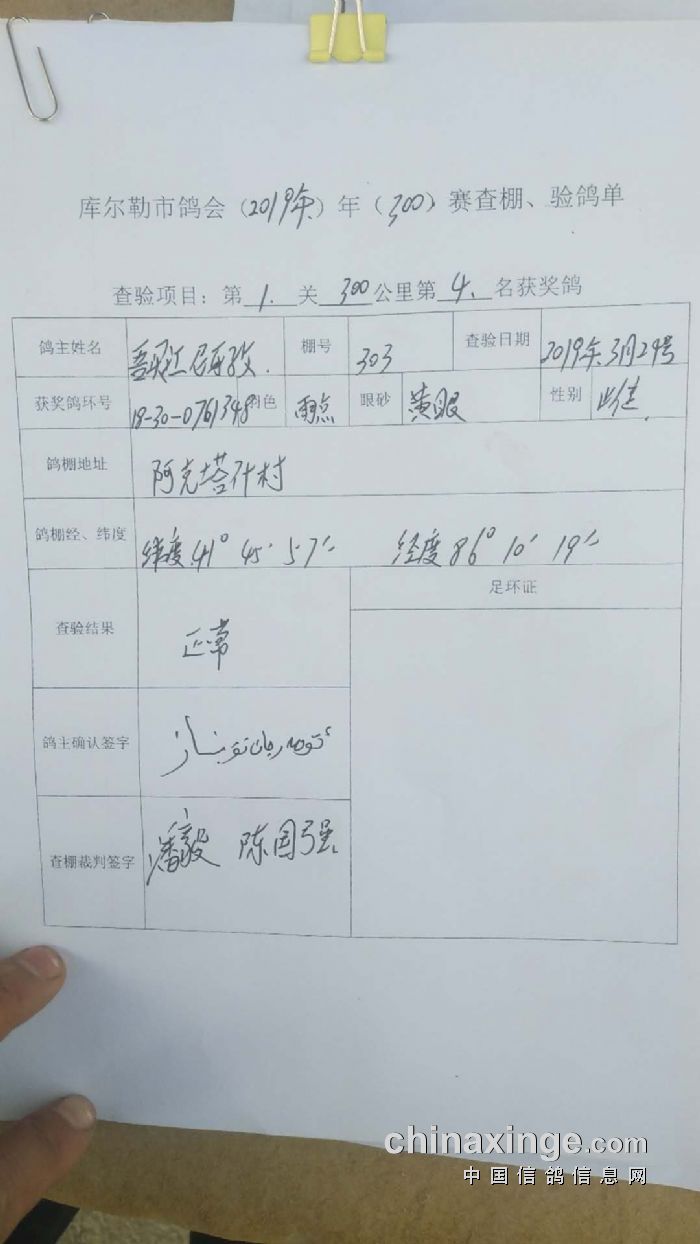 库尔勒市鸽会（2019年）年（300）赛查棚、验鸽单
查验项目：第 1. 关 300 公里第 4. 名获奖鸽
鸽主姓名 棚号 303 查验日期 2019年3月29号
获奖鸽环号 18-30-0761348 羽色 雨点 眼砂 黄眼 性别
鸽棚地址 阿克塔什村
鸽棚经、纬度 纬度41° 45′ 57″ 经度86° 10′ 19″
查验结果 正常 足环证
鸽主确认签字
查棚裁判签字 潘毅 陈国强
chinaxinge.com
中国信鸽信息网